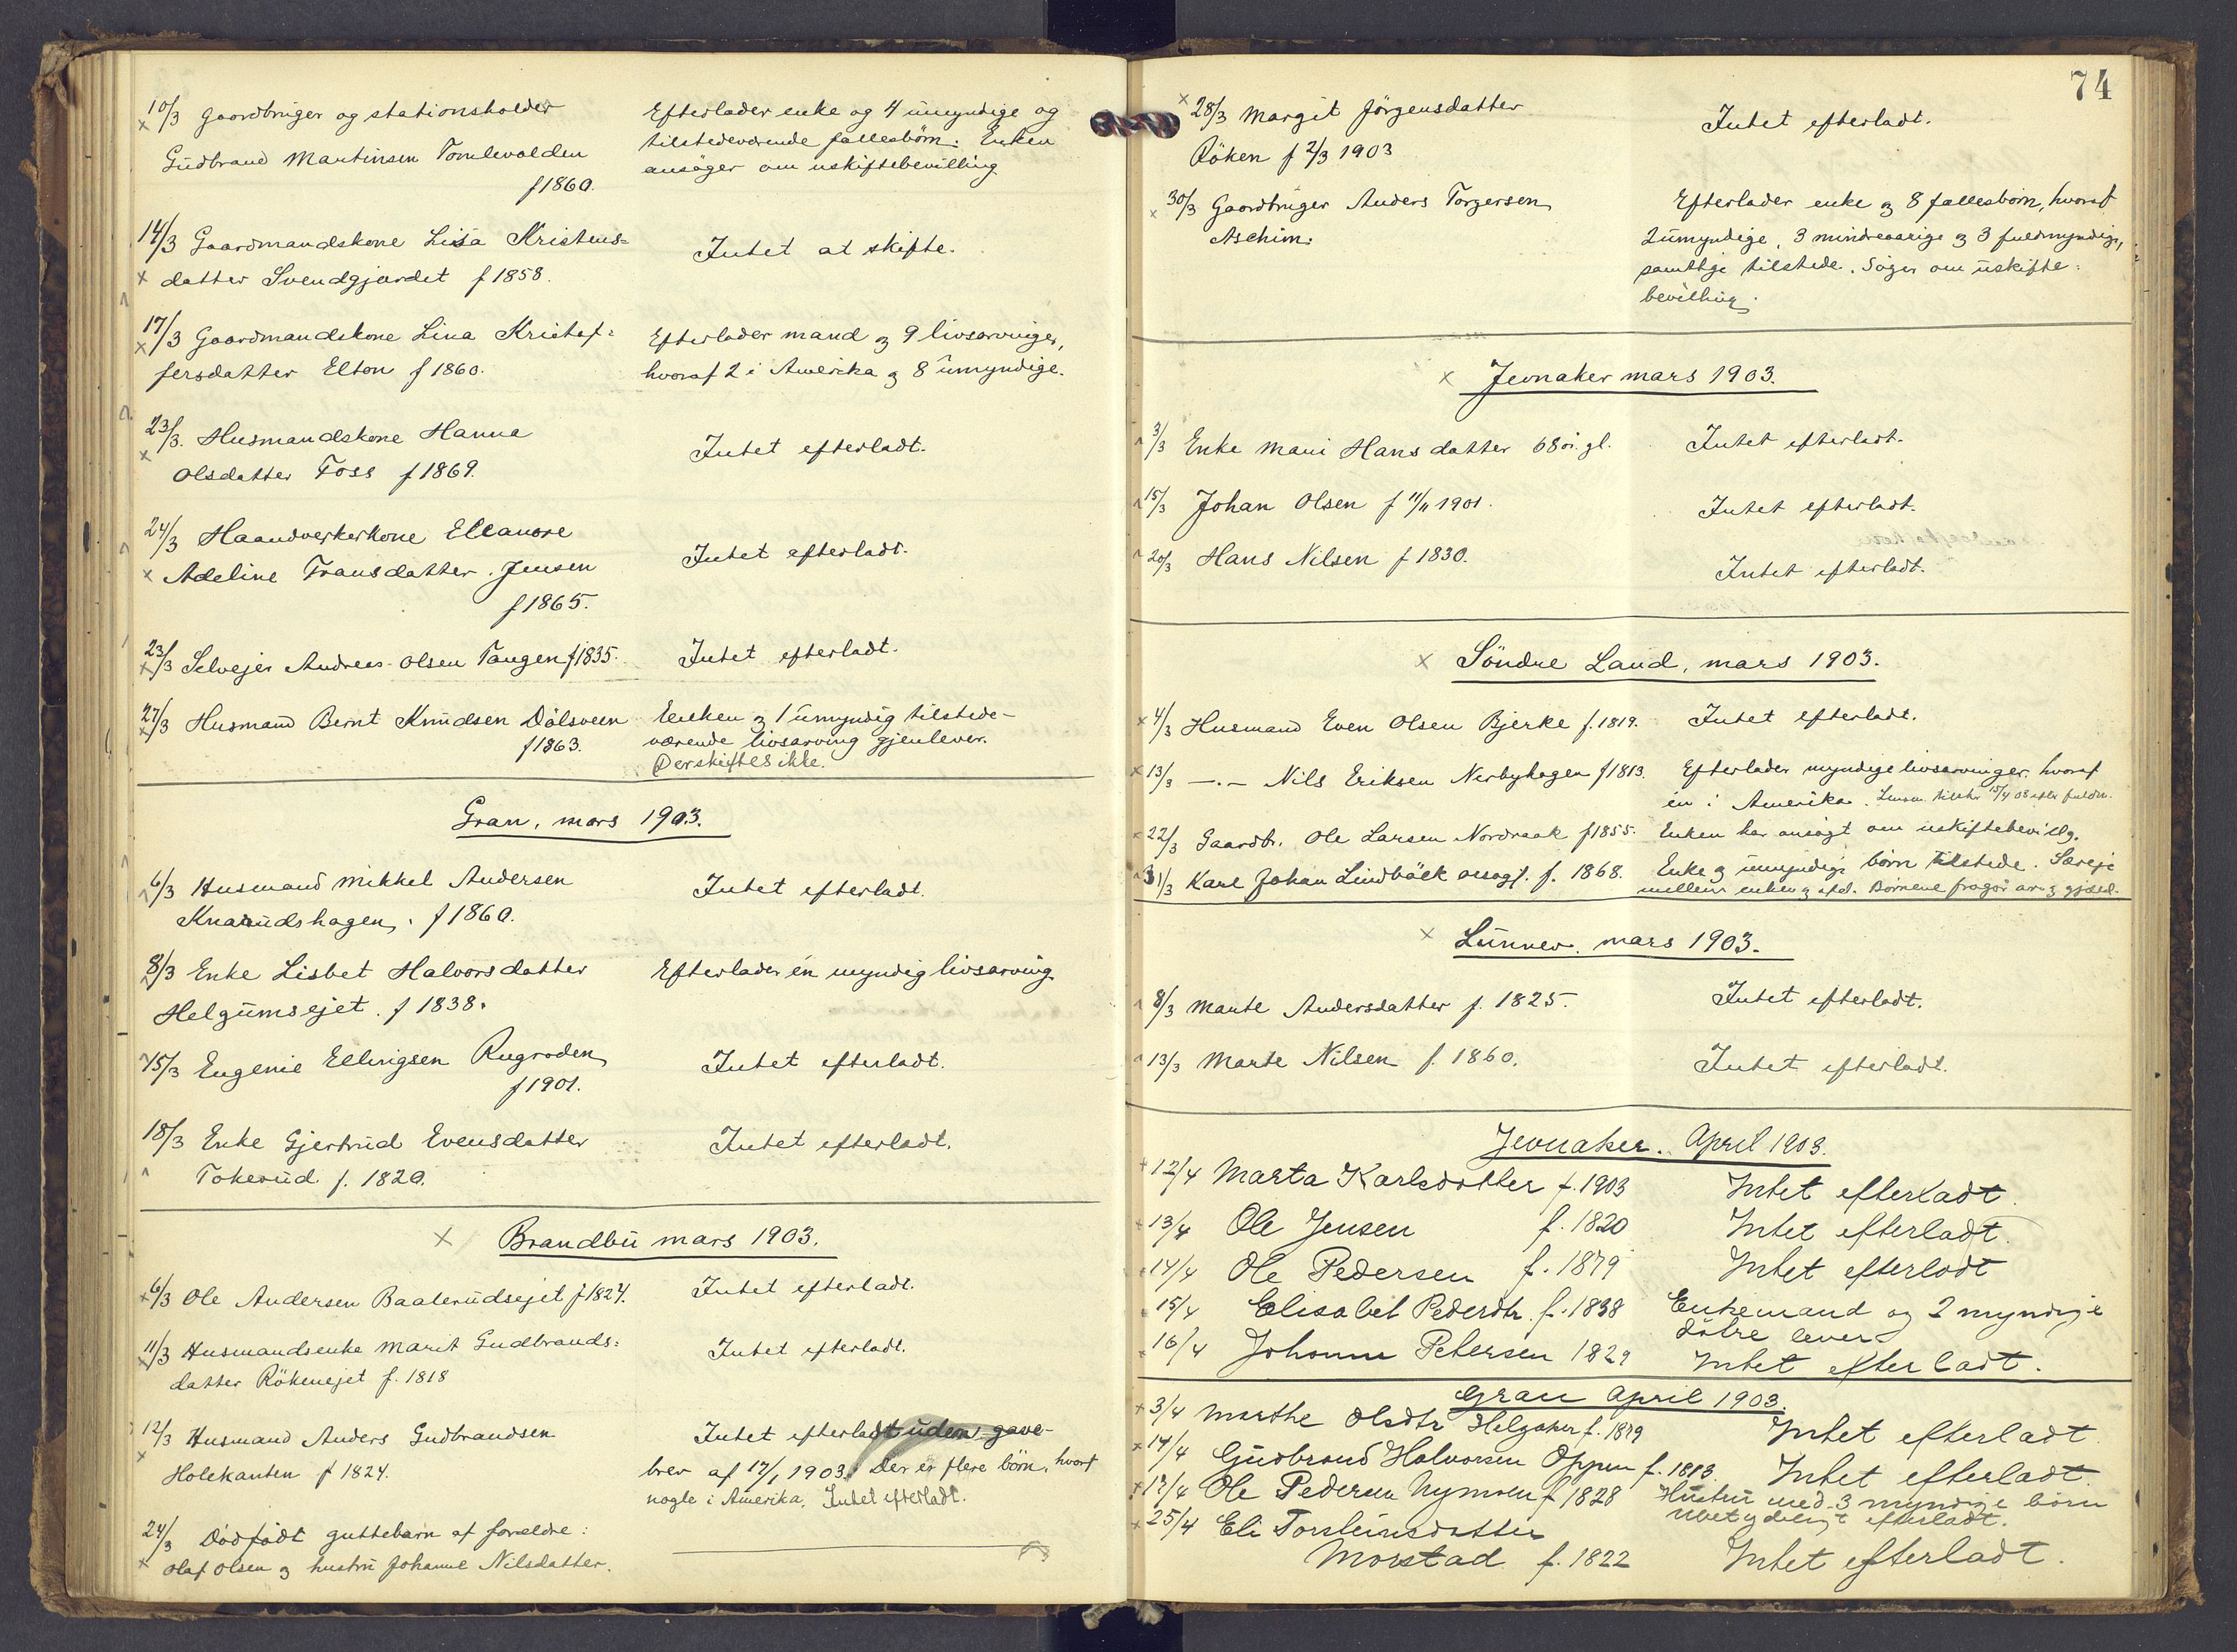 10/3 Gaardbruger og stationsholder
Gudbrand Martinsen Tomlevolden
f 1860.
Efterlader enke og 4 umyndige og
tilstedeværende fællesbørn. Enken
ansøger om uskiftebevilling
14/3 Gaardmandskone Lisa Kristens=
datter Svendgjordet f 1858.
Intet at skifte.
17/3 Gaardmandskone Lina Kristof=
fersdatter Elton f 1860.
Efterlader mand og 9 livsarvinger,
hvoraf 2 i Amerika og 8 umyndige.
23/3. Husmandskone Hanna
Olsdatter Foss f 1869.
Intet efterladt.
24/3 Haandverkerkone Elleanore
Adeline Fransdatter Jensen
f 1865.
Intet efterladt.
23/3 Selvejer Andreas Olsen Tangen f 1835.
Intet efterladt.
27/3 Husmand Bernt Knudsen Dålsveen
f 1863.
Enken og 1 umyndig tilstede-
værende livsarving gjenlever.
Der skiftes ikke.
Gran, mars 1903.
6/3 Husmand Mikkel Andersen
Knarudshagen, f 1860.
Intet efterladt.
8/3 Enke Lisbet Halvorsdatter
Helgumsejet. f 1838.
Efterlader én myndig livsarving
15/3 Eugenie Ellingsen Rugroden
f 1901.
Intet efterladt.
18/3 Enke Gjertrud Evensdatter
Tokerud f. 1820.
Intet efterladt.
X Brandbu mars 1903.
6/3 Ole Andersen Baalerudsejet f 1824.
Intet efterladt.
11/3 Husmandsenke Marit Gudbrands=
datter Rökenejet f. 1818
Intet efterladt.
12/3 Husmand Anders Gudbrandsen
Holekanten f 1824.
Intet efterladt uden gave-
brev af 17/1 1903. Der er flere börn, hvoraf
nogle i Amerika. Intet efterladt.
24/3 Dødfödt guttebarn af forældre:
Olaf Olsen og hustru Johanne Nilsdatter.
74
28/3 Margit Jörgensdatter
Röken f 2/3 1903
Intet efterladt.
30/3 Gaardbruger Anders Torgersen
Aschim.
Efterlader enke og 8 fællesbörn, hvoraf
2 umyndige, 3 mindreaarige og 3 fuldmyndige,
samtlige tilstede. Söger om uskifte=
bevilling.
X Jevnaker mars 1903.
3/3 Enke Mari Hansdatter 68 år gl.
Intet efterladt.
15/3 Johan Olsen f 11/11 1901.
Intet efterladt.
20/3 Hans Nilsen f 1830.
Intet efterladt.
X Söndre Land, mars 1903.
4/3 Husmand Even Olsen Bjerke f. 1819.
Intet efterladt.
13/3 —.— Nils Eriksen Nerbyhagen f 1813.
Efterlader myndige livsarvinger, hvoraf
én i Amerika.
22/3 Gaardbr. Ole Larsen Nordraak f 1855.
Enken har ansögt om uskiftebevillg.
31/3 Karl Johan Lindbäck f. 1868.
Enke og umyndige börn tilstede. Særeje
mellem enken og afd. Börnene fragår arv og gjæld.
X Lunner. mars 1903.
8/3 Marte Andersdatter f. 1825.
Intet efterladt.
13/3 Marte Nilsen f. 1860.
Intet efterladt.
Jevnaker. April 1903.
12/4 Marta Karlsdatter f. 1903
Intet efterladt.
13/4 Ole Jensen f. 1820
Intet efterladt.
14/4 Ole Pedersen f. 1879
Intet efterladt
15/4 Elisabet Pedersdtr. f. 1838
Enkemand og 2 myndige
døtre lever
16/4 Johanne Petersen 1829
Intet efterladt.
Gran April 1903.
3/4 Marthe Olsdtr Helgaker f. 1879
Intet efterladt
14/4 Gudbrand Halvorsen Oppen f. 1813.
Intet efterladt.
17/4 Ole Pedersen Nymoen f 1828
Hustru med 3 myndige börn
Ubetydeligt efterladt.
25/4 Eli Torsteinsdatter
Morstad f. 1822
Intet efterladt.